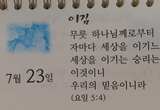 이김
무릇 하나님께로부터
자마다 세상을 이기느
세상을 이기는 승리는
이것이니
우리의 믿음이니라
(요일 5:4)
7월 23일